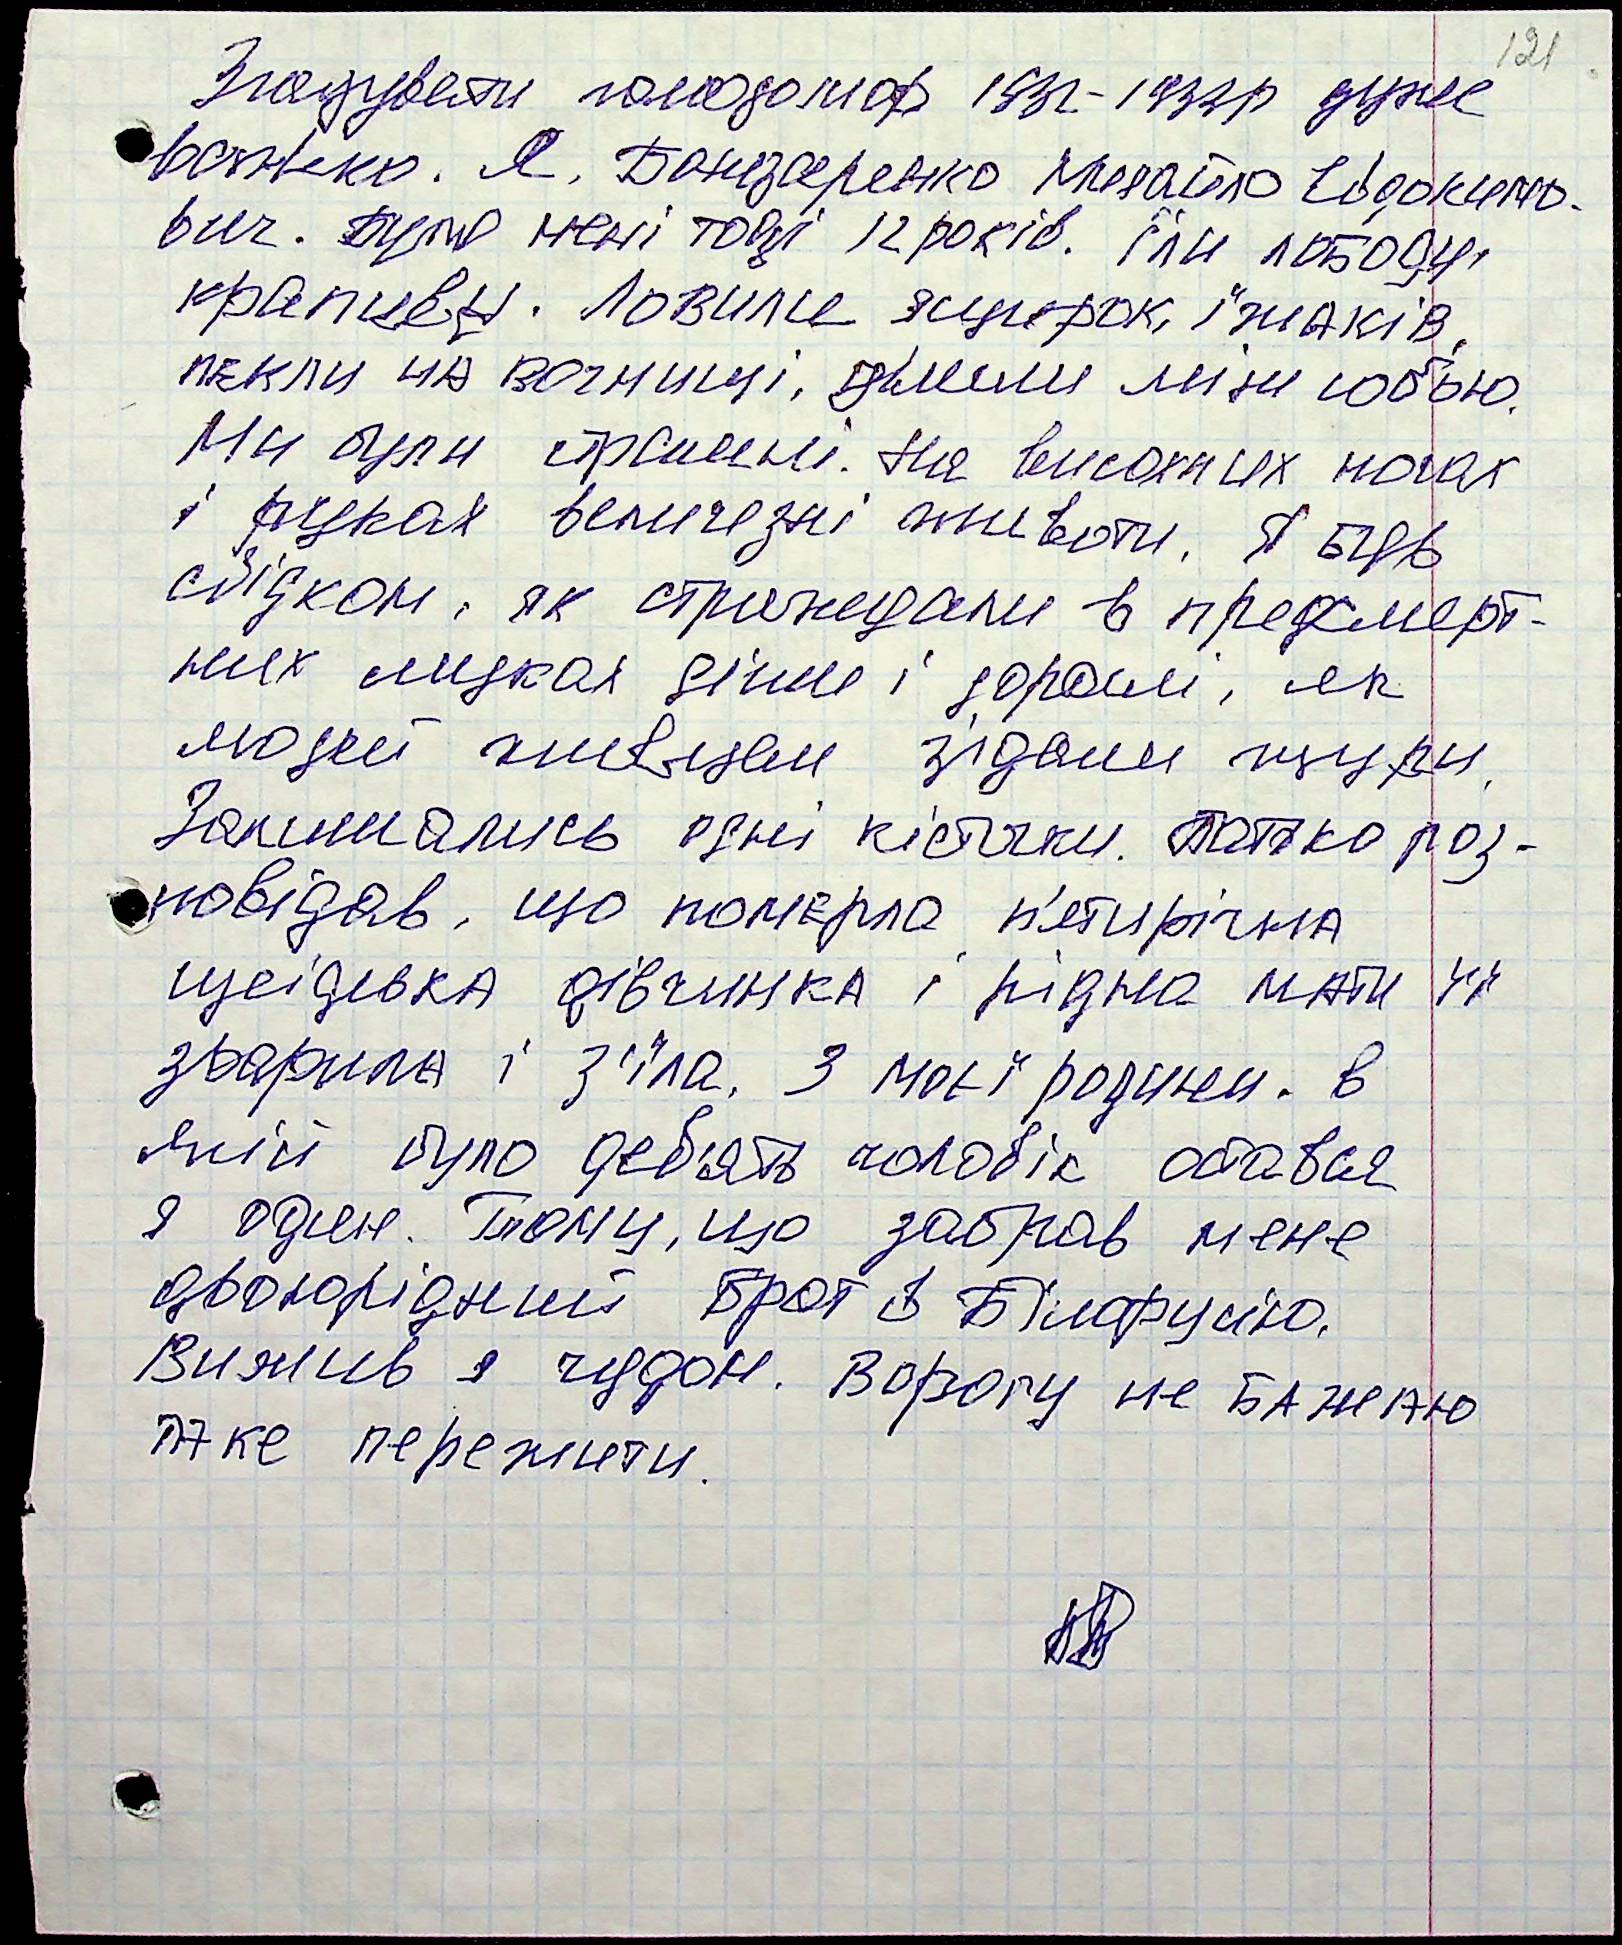 121
Згадувати голодомор 1932-1933р дуже
важко. Я, Бондаренко Михайло Євдокимо-
вич. Було мені тоді 12 років. Їли лободу,
крапиву. Ловили ящирок, їжаків,
пекли на вогнищі, ділили між собою.
Ми були страшні. На висохших ногах
і руках величезні животи. Я був
свідком, як страждали в предсмерт-
них муках діти і дорослі, як
людей живцем з'їдали щури.
Залишались одні кісточки. Батько роз-
повідав, що померла п'ятирічна
сусідська дівчинка і рідна мати її
зварила і з'їла. З моєї родини, в
якій було дев'ять чоловік остався
я один. Тому, що забрав мене
двоюрідний брат в Білорусію.
Вижив я чудом. Ворогу не бажаю
таке пережити.